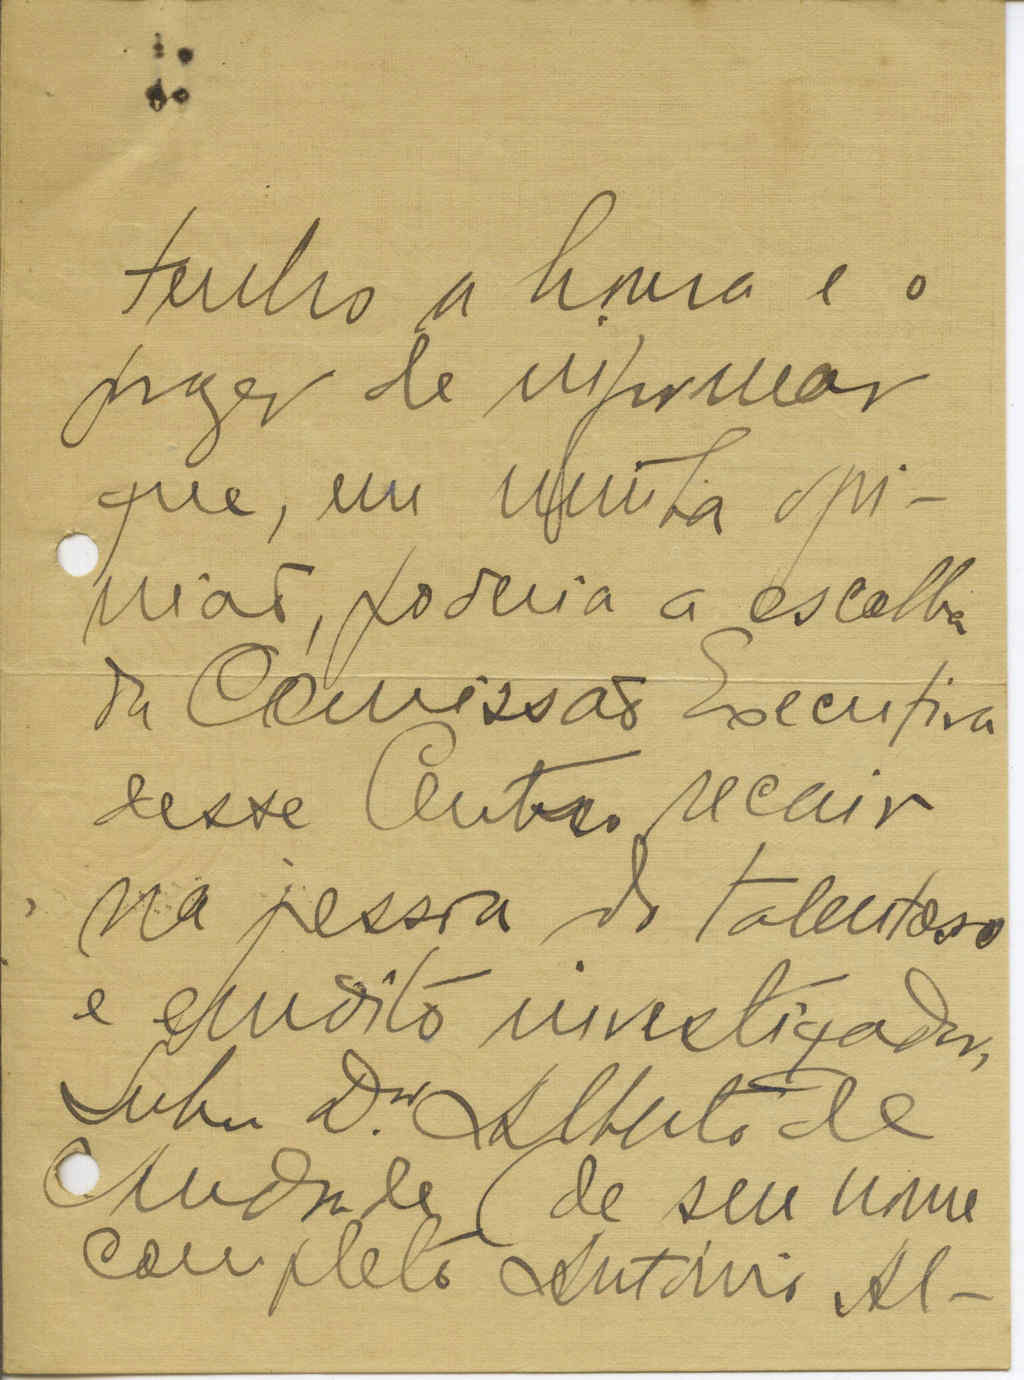 tenho a honra e o
prazer de informar
que, em minha opi-
nião, poderia a escolha
da Comissão Executiva
desse Centro recair
na pessoa do talentoso
e erudito investigador,
Senhor Dor. Alberto de
Andrade (de seu nome
completo António Al-